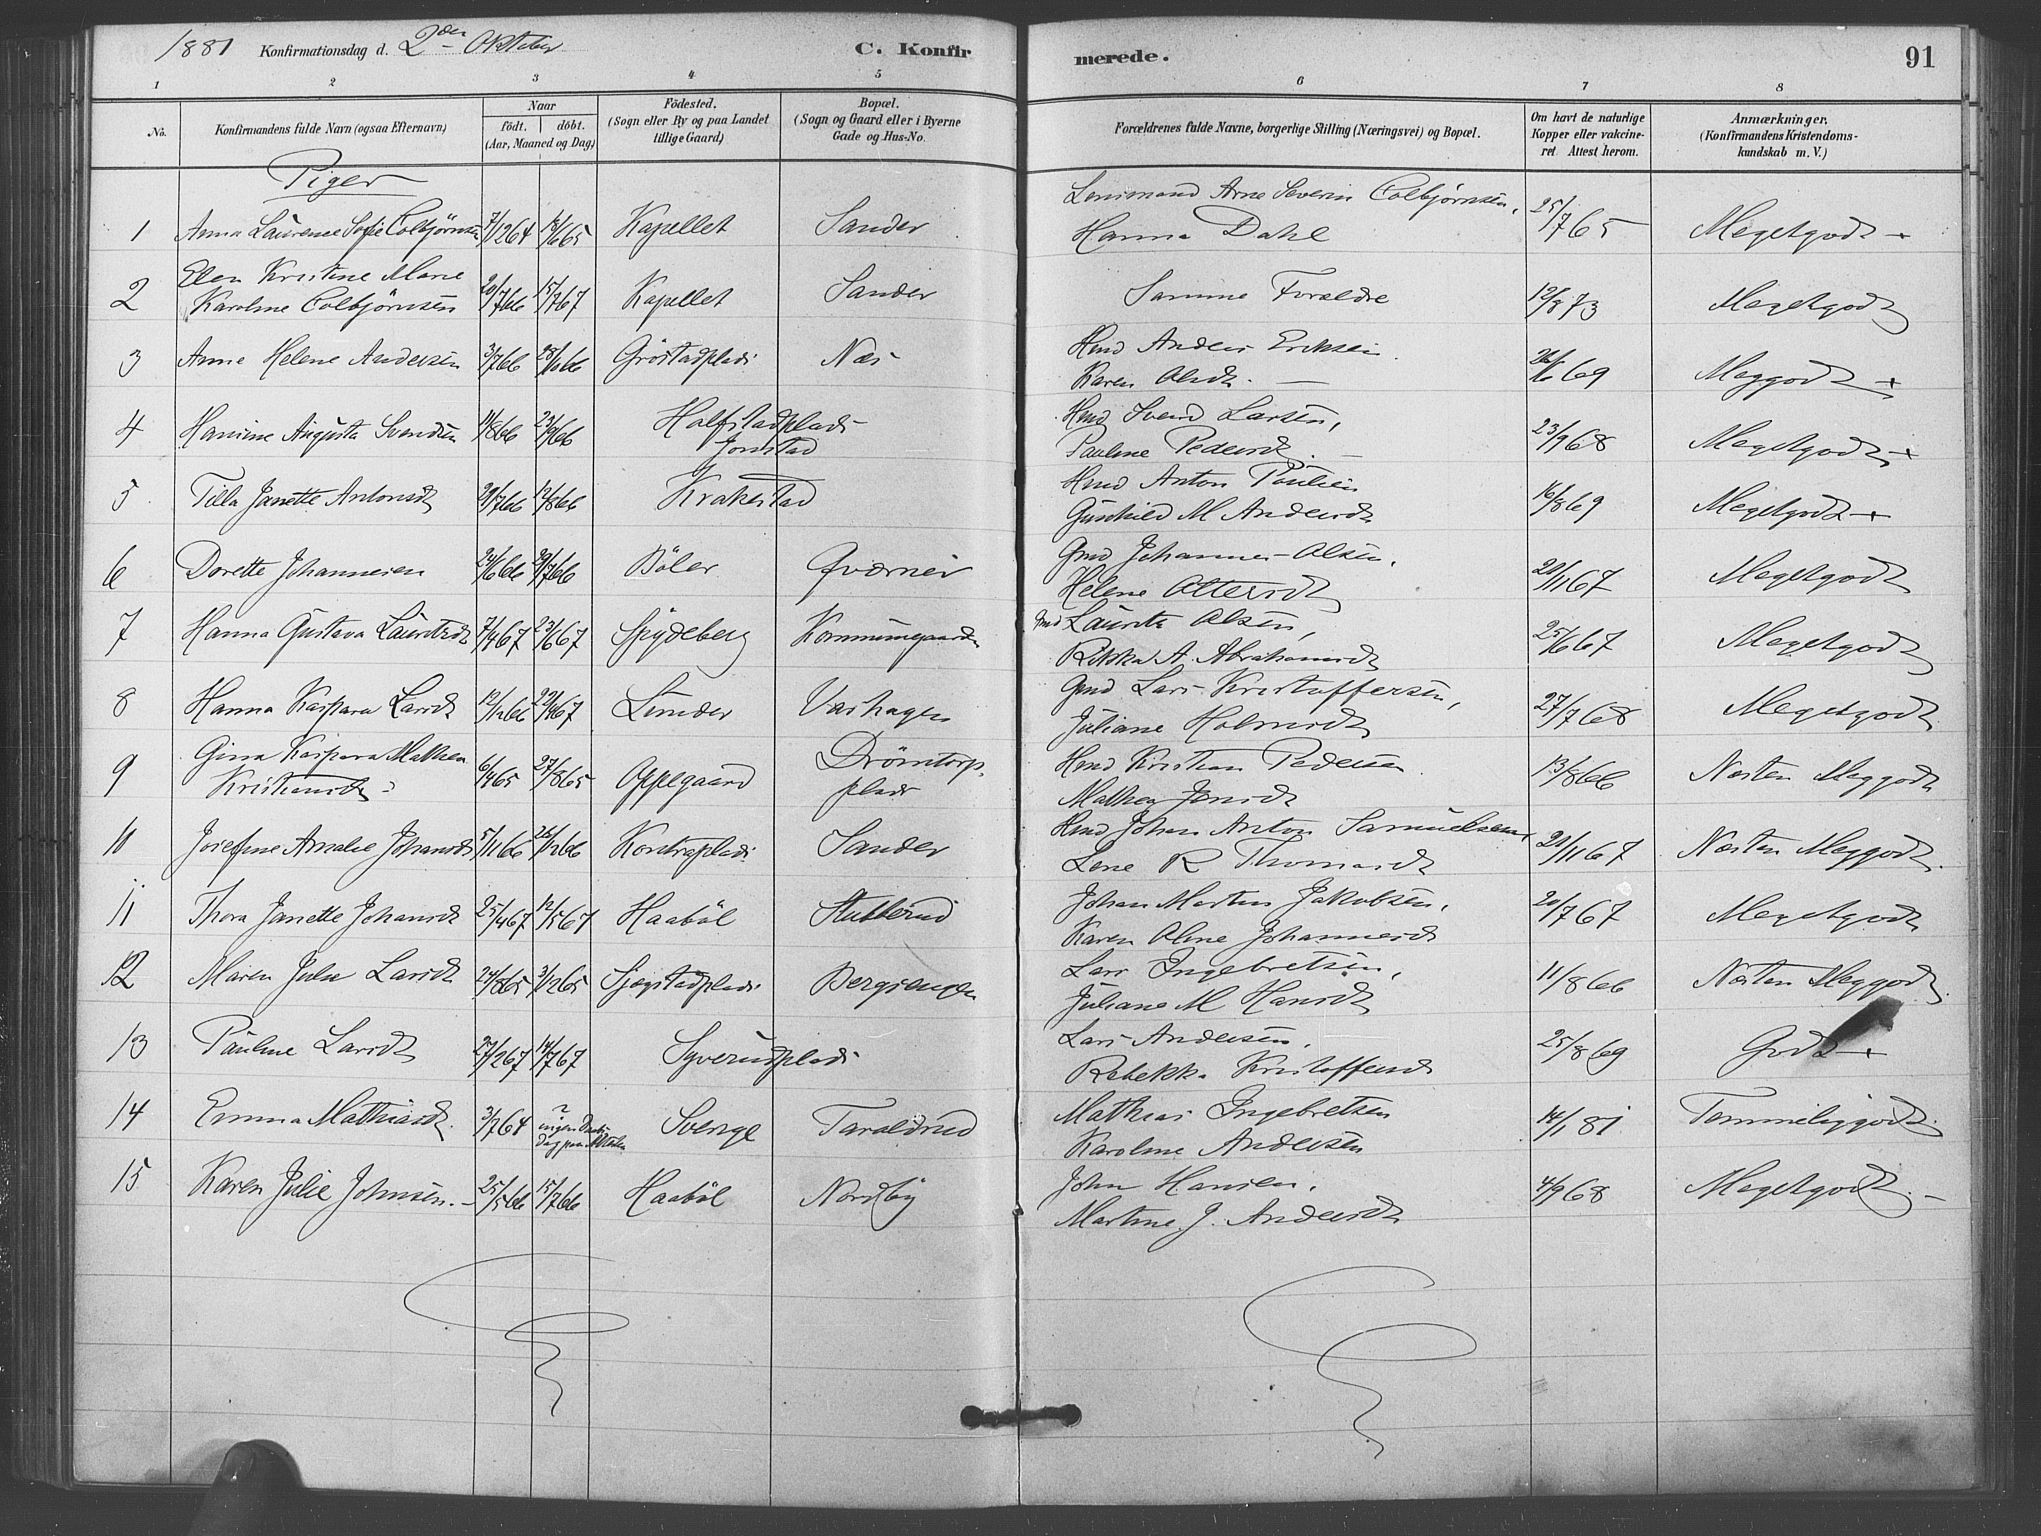 1881 Konfirmationsdag d. 2den Oktober C. Konfirmerede. 91
1 2 3 4 5 6 7 8
No. Konfirmandens fulde Navn (ogsaa Efternavn) Naar født. døbt. (Aar, Maaned og Dag) Fødested. (Sogn eller By og paa Landet tillige Gaard) Bopæl. (Sogn og Gaard eller i Byerne Gade og Hus-No. Forældrenes fulde Navne, borgerlige Stilling (Næringsvei) og Bopæl. Om havt de naturlige Kopper eller vakcineret Attest herom. Anmærkninger. (Konfirmandens Kristendomskundskab m. V.)
Piger
1 Anna Laurence Sofie Colbjørnsen 7/12 64 18/6 65 Kapellet Sander Lensmand Arne Severin Colbjørnsen, Hanna Dahl 25/7 65 Megetgodt
2 Elen Kristine Marie Karoline Colbjørnsen 20/7 66 15/7 67 Kapellet Sander Samme Forældre 12/8 73 Megetgodt
3 Anne Helene Andersen 3/7 66 Grøstadplads Næs Hmd Anders Eriksen Karen Olsdt. 69 Meggodt
4 Hanine Augusta Svendsen 11/8 66 23/9 66 Halfstadplads Jonstad Hmd Svend Larsen, Pauline Pedersdt. 23/9 68 Megetgodt
5 Tilla Janette Antonsdt 12/8 66 Krakestad Hmd Anton Paulsen Gunhild M Andersdt 16/8 69 Megetgodt
6 Dorette Johannesen 24/6 66 29/7 66 Bøler Qværner Gmd Johannes Olsen, Helene Ottersdt 67 Megetgodt
7 Hanna Gustava Lauritzdt 7/4 67 23/6 67 Spydeberg Kommunegaarden Gmd Laurits Olsen, Rikka A. Abrahamsdt 25/6 67 Megetgodt
8 Hanna Kaspara Larsdt 12/12 66 22/4 67 Sunder Varhagen Gmd Lars Kristoffersen, Juliane Holmsdt 27/7 68 Megetgodt
9 Gina Kaspara Mathea Kristiansdt 6/4 65 27/8 65 Oppegaard Drømtorpplads Hmd Kristian Pedersen Mathea Jensdt 13/8 66 Næsten Meggodt
10 Josefine Amalie Johansdt 5/11 66 26/12 66 Kontraplads Sander Hmd Johan Anton Samuelsen, Lene R Thomasdt 67 Næsten Meggodt
11 Thora Janette Johansdt 25/4 67 12/5 67 Haabøl Stutterud Johan Martin Jakobsen, Karen Oline Johannesdt 20/7 67 Megetgodt
12 Maren Julie Larsdt 24/8 65 3/12 65 Sjøgstadplads Bergsengen Lars Ingebretsen, Juliane M Hansdt 11/8 66 Næsten Meggodt
13 Pauline Larsdt 27/2 67 14/7 67 Syverudplads Lars Andersen, Rebekka Kristoffersdt 25/8 69 Godt
14 Emma Mathiasdt. 3/7 64 ? ingen Daabsdag paa Attesten Sverige Taraldrud Mathias Ingebretsen Karoline Andersen 14/1 81 Temmeliggodt.
15 Karen Julie Johnsen. 25/5 66 15/7 66 Haabøl Nordby John Hansen, Martine J. Andersdt 4/9 68 Megetgodt.